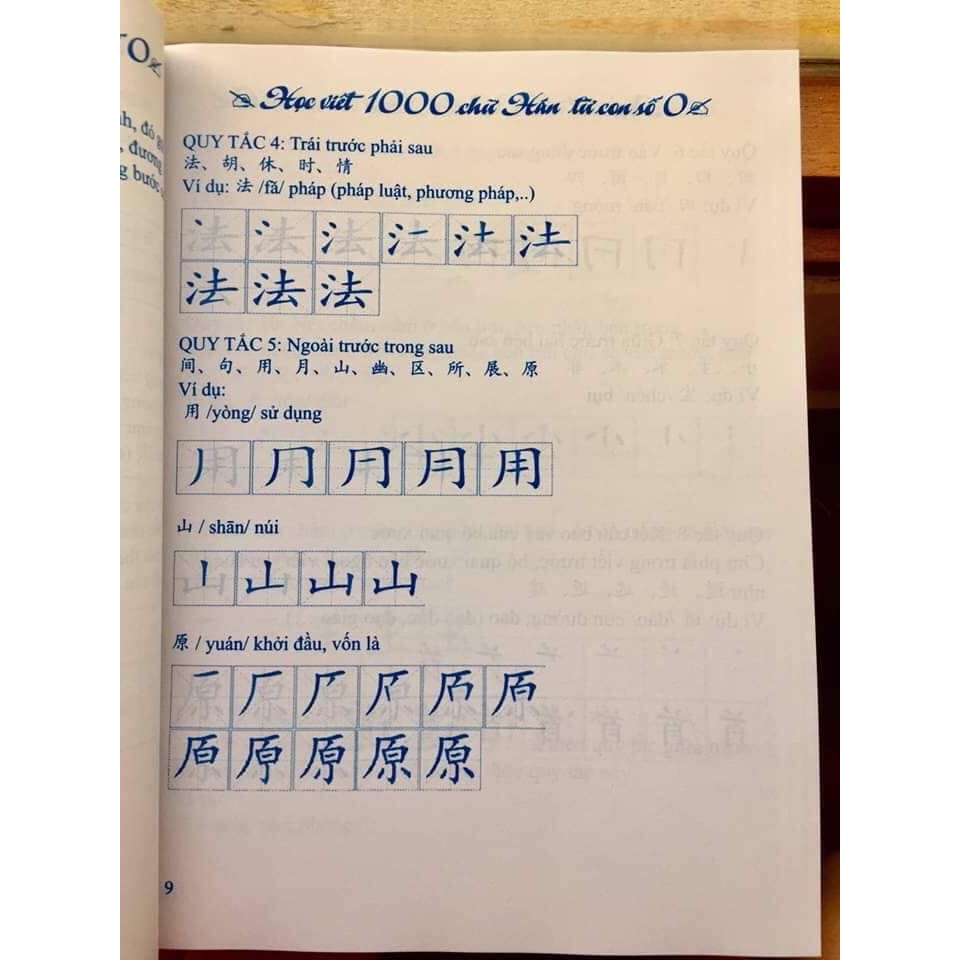 Học viết 1000 chữ Hán từ con số 0
QUY TẮC 4: Trái trước phải sau
法、胡、休、时、情
Ví dụ: 法 /fǎ/ pháp (pháp luật, phương pháp,..)
法 法 法 法 法 法
法 法 法
QUY TẮC 5: Ngoài trước trong sau
间、句、用、月、山、幽、区、所、展、原
Ví dụ:
用 /yòng/ sử dụng
用 用 用 用 用
山 / shān/ núi
山 山 山 山
原 / yuán/ khởi đầu, vốn là
原 原 原 原 原 原
原 原 原 原 原
9